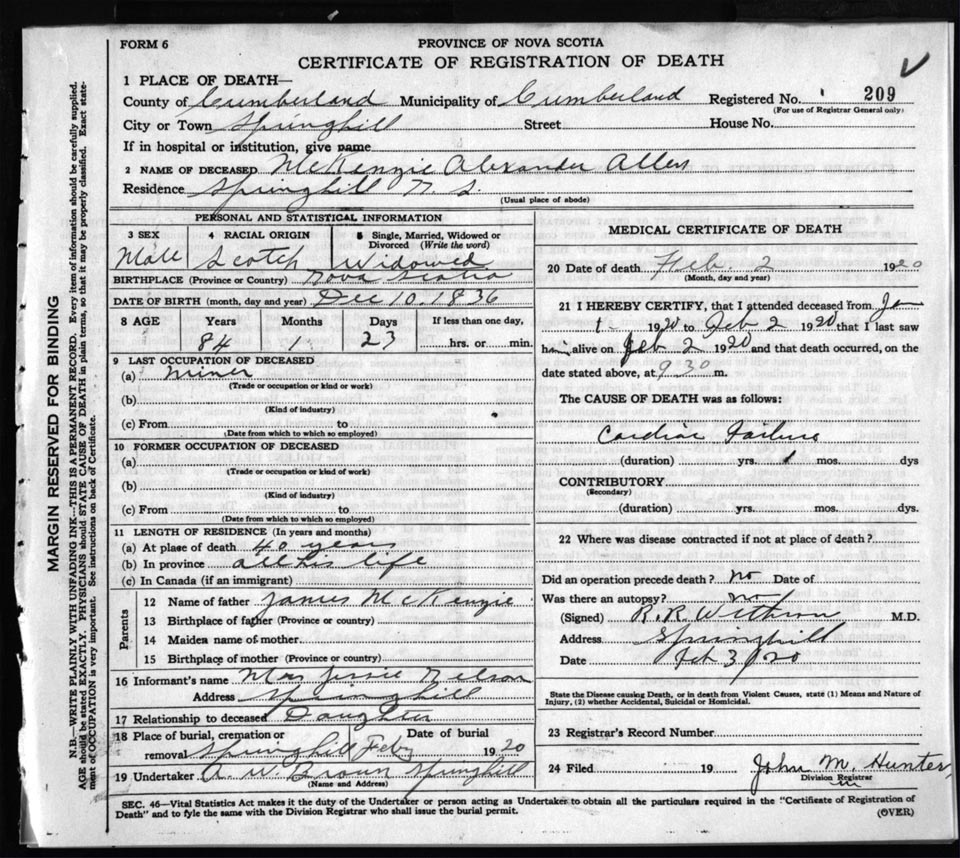 FORM 6
PROVINCE OF NOVA SCOTIA
CERTIFICATE OF REGISTRATION OF DEATH
1 PLACE OF DEATH—
County of Cumberland Municipality of Cumberland Registered No. 209
(For use of Registrar General only)
City or Town Springhill Street House No.
If in hospital or institution, give name
2 NAME OF DECEASED McKenzie Alexander Allen
Residence Springhill N. S.
(Usual place of abode)
PERSONAL AND STATISTICAL INFORMATION
3 SEX 4 RACIAL ORIGIN 5 Single, Married, Widowed or Divorced (Write the word)
Male Scotch Widowed
BIRTHPLACE (Province or Country) Nova Scotia
DATE OF BIRTH (month, day and year) Dec 10. 1836
8 AGE Years Months Days If less than one day,
84 1 23 hrs. or min.
9 LAST OCCUPATION OF DECEASED
(a) Miner
(Trade or occupation or kind or work)
(b)
(Kind of industry)
(c) From to
(Date from which to which so employed)
10 FORMER OCCUPATION OF DECEASED
(a)
(Trade or occupation or kind of work)
(b)
(Kind of industry)
(c) From to
(Date from which to which so employed)
11 LENGTH OF RESIDENCE (In years and months)
(a) At place of death 40 years
(b) In province all his life
(c) In Canada (if an immigrant)
Parents
12 Name of father James McKenzie
13 Birthplace of father (Province or country)
14 Maiden name of mother
15 Birthplace of mother (Province or country)
16 Informant's name Mrs Jessie Nelson
Address Springhill
17 Relationship to deceased Daughter
18 Place of burial, cremation or removal Springhill Date of burial Feby 1920
19 Undertaker A. W. Brown Springhill
(Name and Address)
MEDICAL CERTIFICATE OF DEATH
20 Date of death Feb. 2 1920
(Month, day and year)
21 I HEREBY CERTIFY, that I attended deceased from Jan
1920 to Feb 2 1920 that I last saw
him alive on Feb 2 1920 and that death occurred, on the
date stated above, at 9 30 m.
The CAUSE OF DEATH was as follows:
Cardiac Failure
(duration) yrs. 1 mos. dys
CONTRIBUTORY
(Secondary)
(duration) yrs. mos. dys.
22 Where was disease contracted if not at place of death?
Did an operation precede death? no Date of
Was there an autopsy? no
(Signed) R. R. Withrow M.D.
Address Springhill
Date Feb 3/20
State the Disease causing Death, or in death from Violent Causes, state (1) Means and Nature of
Injury, (2) whether Accidental, Suicidal or Homicidal.
23 Registrar's Record Number
24 Filed 19 John M. Hunter
Division Registrar
SEC. 46—Vital Statistics Act makes it the duty of the Undertaker or person acting as Undertaker to obtain all the particulars required in the "Certificate of Registration of
Death" and to fyle the same with the Division Registrar who shall issue the burial permit.
(OVER)
MARGIN RESERVED FOR BINDING
N.B.—WRITE PLAINLY WITH UNFADING INK—THIS IS A PERMANENT RECORD. Every item of information should be carefully supplied.
AGE should be stated EXACTLY. PHYSICIANS should STATE CAUSE OF DEATH in plain terms, so that it may be properly classified. Exact state-
ment of OCCUPATION is very important. See instructions on back of Certificate.